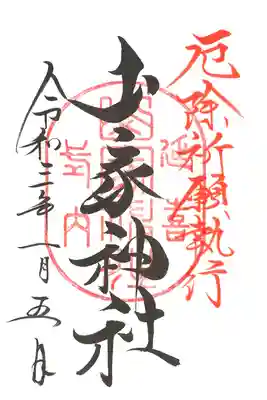 厄除祈願執行
神社
延喜
式内
令和三年一月五日